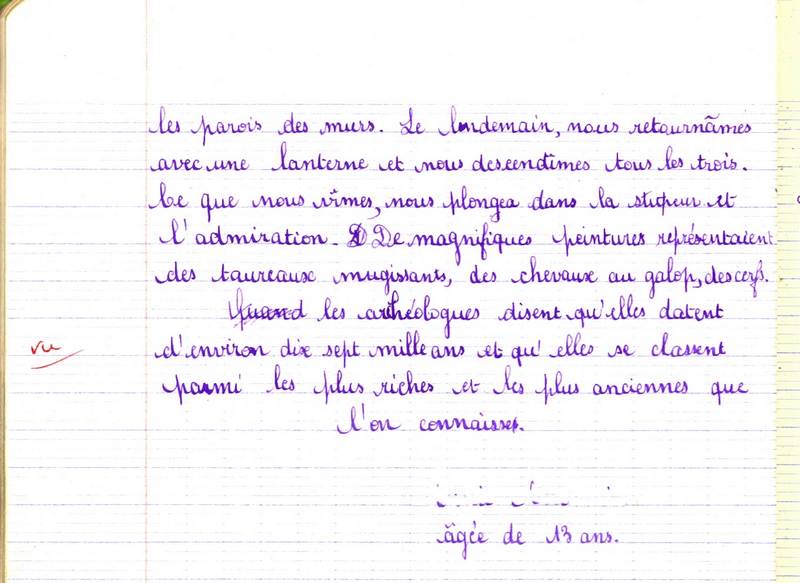 les parois des murs. Le lendemain, nous retournâmes
avec une lanterne et nous descendîmes tous les trois.
Ce que nous vîmes, nous plongea dans la stupeur et
l'admiration. De magnifiques peintures représentaient
des taureaux mugissants, des chevaux au galop, des cerfs.
Quand les archéologues disent qu'elles datent
vu
d'environ dix sept mille ans et qu'elles se classent
parmi les plus riches et les plus anciennes que
l'on connaisse.
âgée de 13 ans.